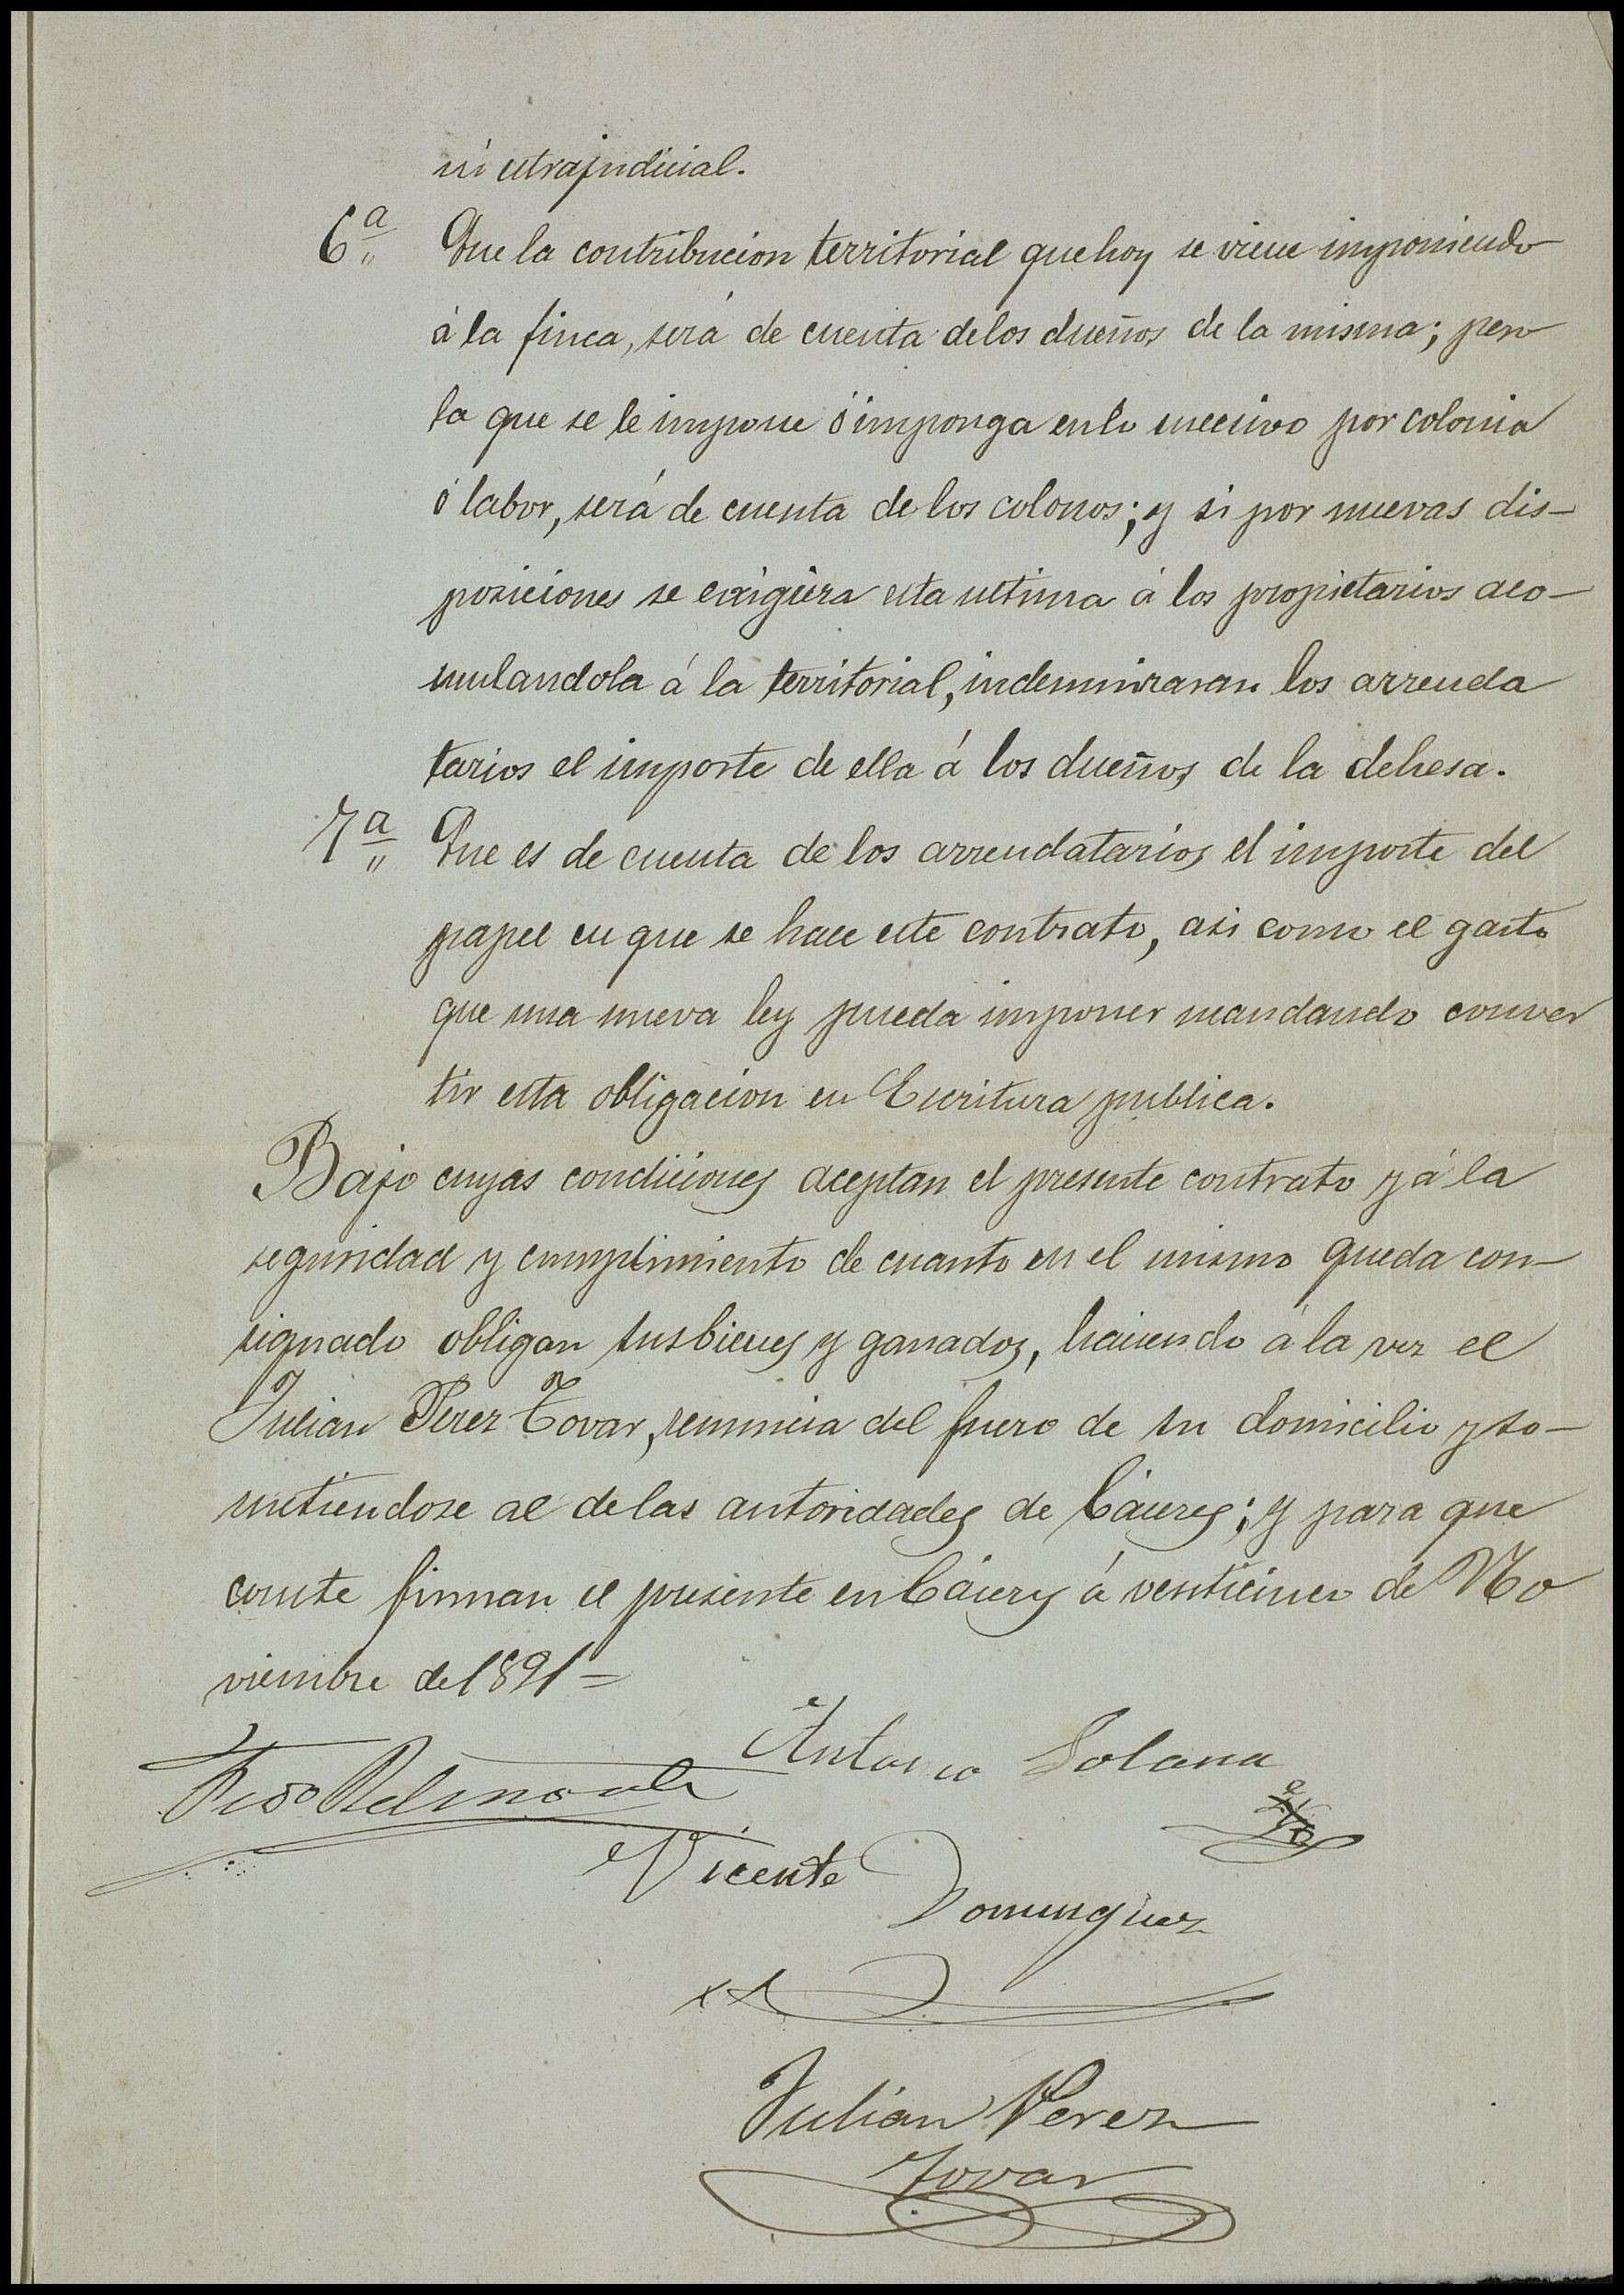 ni estrajudicial.
6ª Que la contribucion territorial que hoy se viene imponiendo
á la finca, será de cuenta de los dueños de la misma; pero
la que se le impone ó imponga en lo sucesivo por colonia
ó labor, será de cuenta de los colonos; y si por nuevas dis-
posiciones se exigiera esta ultima á los propietarios aco-
mulandola á la territorial, indemnizaran los arrenda
tarios el importe de ella á los dueños de la dehesa.
7ª Que es de cuenta de los arrendatarios el importe del
papel en que se hace este contrato, asi como el gasto
que una nueva ley pueda imponer mandando conver
tir esta obligacion en Escritura publica.
Bajo cuyas condiciones aceptan el presente contrato y á la
seguridad y cumplimiento de cuanto en el mismo queda con-
signado obligan sus bienes y ganados, haciendo á la vez el
Julian Perez Tovar, renuncia del fuero de su domicilio y so-
metiendose al de las autoridades de Cáceres; y para que
conste firman el presente en Cáceres á venticinco de No
viembre de 1891=
Antonio Solana
Fco Belmonte
Vicente
Dominguez
Julian Perez
Tovar